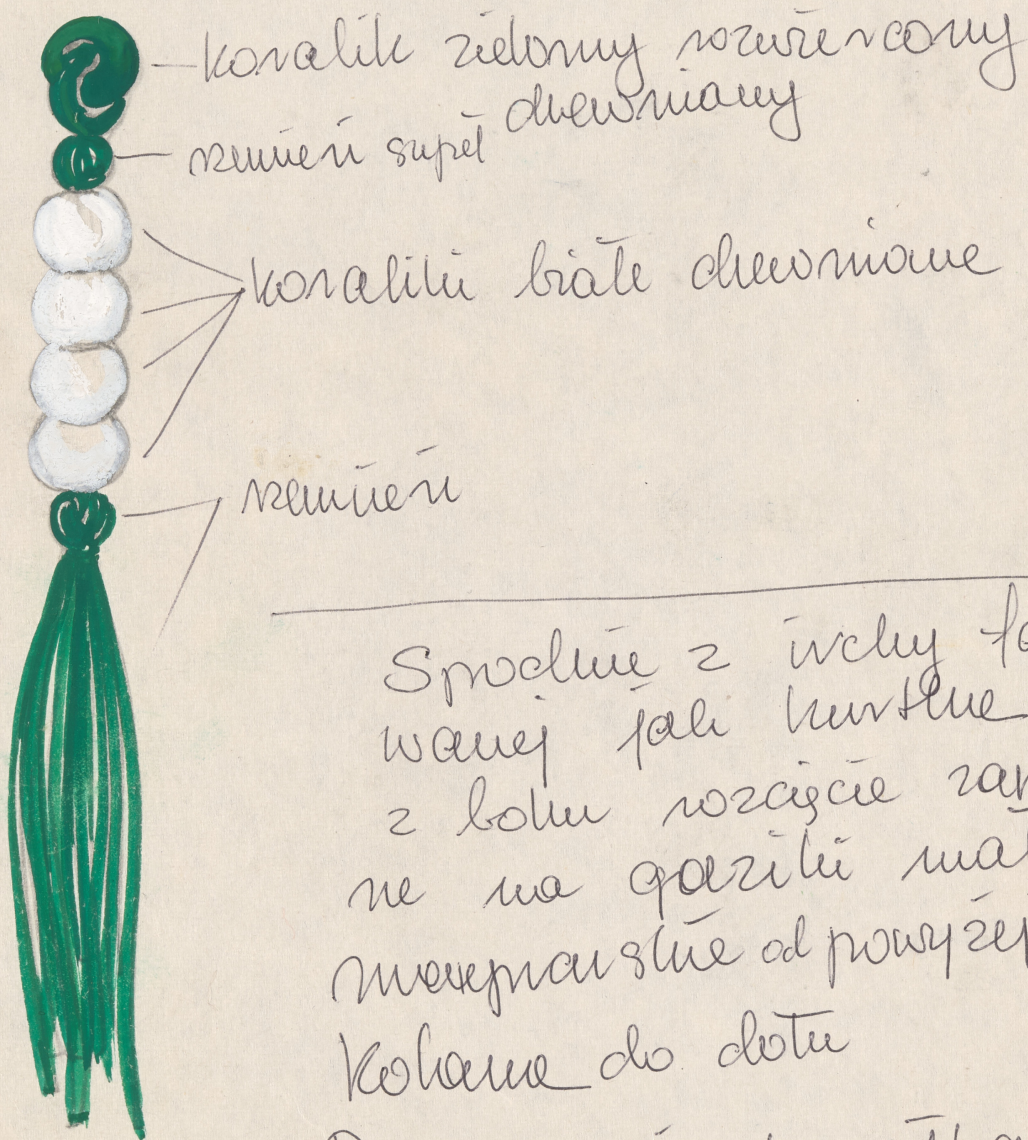 koralik zielony rozwiercony
drewniany
rzemień supeł
koraliki białe drewniane
rzemień
Spodnie z irchy
wanej jak kurtka
z boku rozcięcie
ne na guziki
marynarskie od powyżej
kolana do dołu